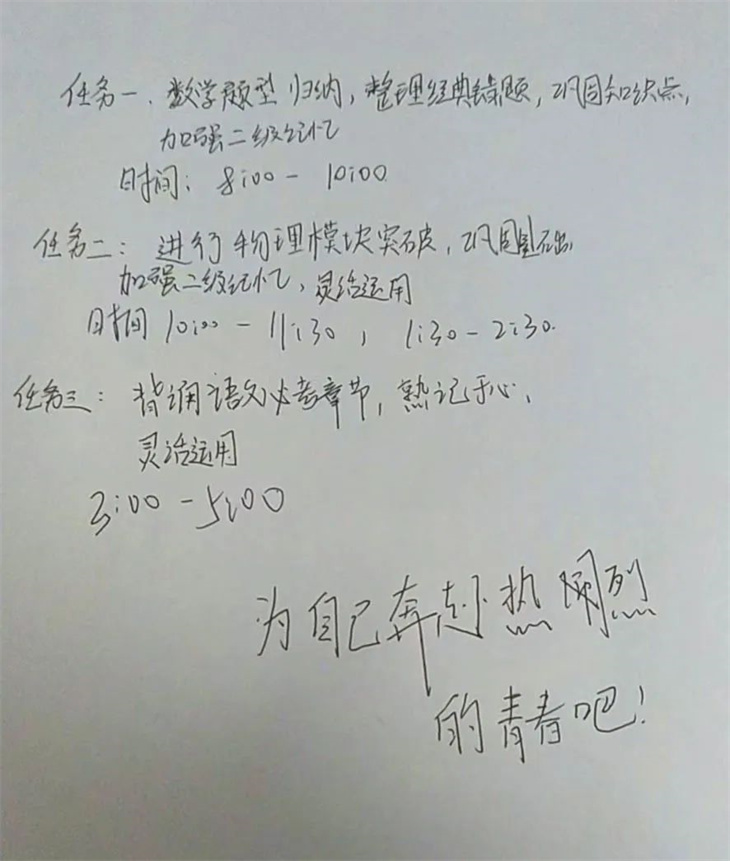 任务一、数学题型归纳，整理经典错题，巩固知识点，
加强二级记忆
时间：8:00 - 10:00
任务二：进行物理模块突破，巩固基础
加强二级记忆，灵活运用
时间 10:00 - 11:30，1:30 - 2:30.
任务三：背诵语文必考章节，熟记于心，
灵活运用
3:00 - 5:00
为自己奔赴热烈
的青春吧！